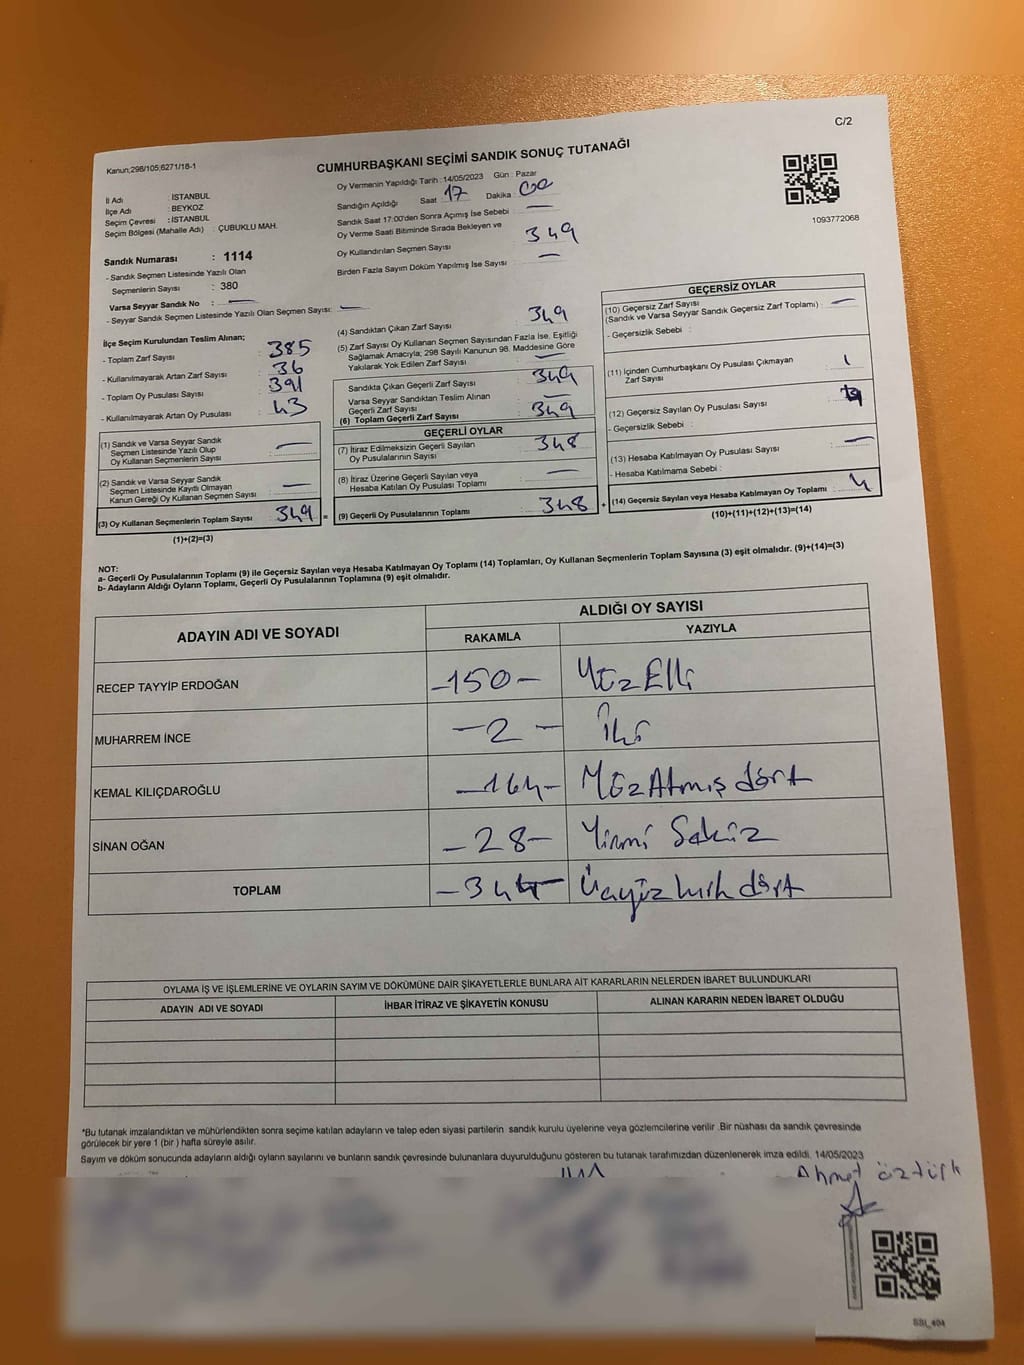 C/2
Kanun;298/105;6271/18-1
CUMHURBAŞKANI SEÇİMİ SANDIK SONUÇ TUTANAĞI
İl Adı : İSTANBUL
İlçe Adı : BEYKOZ
Seçim Çevresi : İSTANBUL
Seçim Bölgesi (Mahalle Adı) : ÇUBUKLU MAH.
Sandık Numarası : 1114
- Sandık Seçmen Listesinde Yazılı Olan
Seçmenlerin Sayısı : 380
Varsa Seyyar Sandık No : —
- Seyyar Sandık Seçmen Listesinde Yazılı Olan Seçmen Sayısı: —
Oy Vermenin Yapıldığı Tarih : 14/05/2023 Gün : Pazar
Sandığın Açıldığı Saat 17 Dakika : 00
Sandık Saat 17:00'den Sonra Açımış İse Sebebi : —
Oy Verme Saati Bitiminde Sırada Bekleyen ve
Oy Kullandırılan Seçmen Sayısı 349
Birden Fazla Sayım Döküm Yapılmış İse Sayısı : —
1093772068
İlçe Seçim Kurulundan Teslim Alınan;
- Toplam Zarf Sayısı : 385
- Kullanılmayarak Artan Zarf Sayısı : 36
- Toplam Oy Pusulası Sayısı : 391
- Kullanılmayarak Artan Oy Pusulası : 43
(1) Sandık ve Varsa Seyyar Sandık
Seçmen Listesinde Yazılı Olup
Oy Kullanan Seçmenlerin Sayısı : —
(2) Sandık ve Varsa Seyyar Sandık
Seçmen Listesinde Kayıtlı Olmayan
Kanun Gereği Oy Kullanan Seçmen Sayısı : —
(3) Oy Kullanan Seçmenlerin Toplam Sayısı 349 =
(1)+(2)=(3)
(4) Sandıktan Çıkan Zarf Sayısı : 349
(5) Zarf Sayısı Oy Kullanan Seçmen Sayısından Fazla İse, Eşitliği
Sağlamak Amacıyla; 298 Sayılı Kanunun 98. Maddesine Göre
Yakılarak Yok Edilen Zarf Sayısı : —
Sandıkta Çıkan Geçerli Zarf Sayısı : 349
Varsa Seyyar Sandıktan Teslim Alınan
Geçerli Zarf Sayısı : —
(6) Toplam Geçerli Zarf Sayısı : 349
GEÇERLİ OYLAR
(7) İtiraz Edilmeksizin Geçerli Sayılan
Oy Pusulalarının Sayısı : 348
(8) İtiraz Üzerine Geçerli Sayılan veya
Hesaba Katılan Oy Pusulası Toplamı : —
(9) Geçerli Oy Pusulalarının Toplamı : 348 +
GEÇERSİZ OYLAR
(10) Geçersiz Zarf Sayısı
(Sandık ve Varsa Seyyar Sandık Geçersiz Zarf Toplamı) : —
- Geçersizlik Sebebi :
(11) İçinden Cumhurbaşkanı Oy Pusulası Çıkmayan
Zarf Sayısı : 1
(12) Geçersiz Sayılan Oy Pusulası Sayısı :
- Geçersizlik Sebebi :
(13) Hesaba Katılmayan Oy Pusulası Sayısı : —
- Hesaba Katılmama Sebebi :
(14) Geçersiz Sayılan veya Hesaba Katılmayan Oy Toplamı : 4
(10)+(11)+(12)+(13)=(14)
NOT:
a- Geçerli Oy Pusulalarının Toplamı (9) ile Geçersiz Sayılan veya Hesaba Katılmayan Oy Toplamı (14) Toplamları, Oy Kullanan Seçmenlerin Toplam Sayısına (3) eşit olmalıdır. (9)+(14)=(3)
b- Adayların Aldığı Oyların Toplamı, Geçerli Oy Pusulalarının Toplamına (9) eşit olmalıdır.
ADAYIN ADI VE SOYADI
ALDIĞI OY SAYISI
RAKAMLA YAZIYLA
RECEP TAYYİP ERDOĞAN -150- Yüz Elli
MUHARREM İNCE - 2 - İki
KEMAL KILIÇDAROĞLU -164- Yüz Atmış dört
SİNAN OĞAN - 28- Yirmi Sekiz
TOPLAM - 344 Üçyüz kırk dört
OYLAMA İŞ VE İŞLEMLERİNE VE OYLARIN SAYIM VE DÖKÜMÜNE DAİR ŞİKAYETLERLE BUNLARA AİT KARARLARIN NELERDEN İBARET BULUNDUKLARI
ADAYIN ADI VE SOYADI İHBAR İTİRAZ VE ŞİKAYETİN KONUSU ALINAN KARARIN NEDEN İBARET OLDUĞU
*Bu tutanak imzalandıktan ve mühürlendikten sonra seçime katılan adayların ve talep eden siyasi partilerin sandık kurulu üyelerine veya gözlemcilerine verilir .Bir nüshası da sandık çevresinde
görülecek bir yere 1 (bir ) hafta süreyle asılır.
Sayım ve döküm sonucunda adayların aldığı oyların sayılarını ve bunların sandık çevresinde bulunanlara duyurulduğunu gösteren bu tutanak tarafımızdan düzenlenerek imza edildi. 14/05/2023
Ahmet öztürk
SSI_404